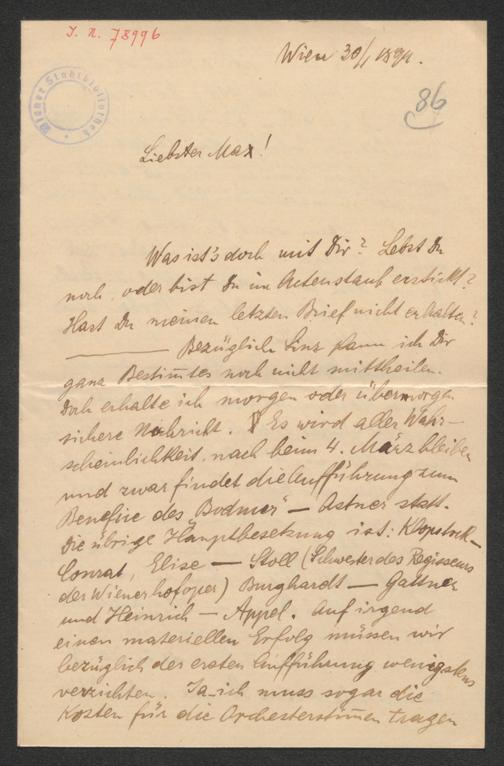 J. N. 78996
Wien 30/1 1894.
86
Wiener Stadtbibliothek
Liebster Max!
Was ist's doch mit Dir? Lebst Du
noch, oder bist Du im Actenstaub erstickt?
Hast Du meinen letzten Brief nicht erhalten?
Bezüglich Linz kann ich Dir
ganz Bestim̅tes noch nicht mittheilen.
Doch erhalte ich morgen oder übermorgen
sichere Nachricht. Es wird aller Wahr-
scheinlichkeit nach beim 4. März bleiben
und zwar findet die Aufführung zum
Benefice des Bodmer — Astner statt.
Die übrige Hauptbesetzung ist: Klopstock —
Conrat, Elise — Stoll (Schwester des Regisseurs
der Wiener hofoper) Burghardt — Gattner
und Heinrich — Appel. Auf irgend
einen materiellen Erfolg müssen wir
bezüglich der ersten Aufführung wenigstens
verzichten. Ja ich muss sogar die
Kosten für die Orchesterstim̅en tragen